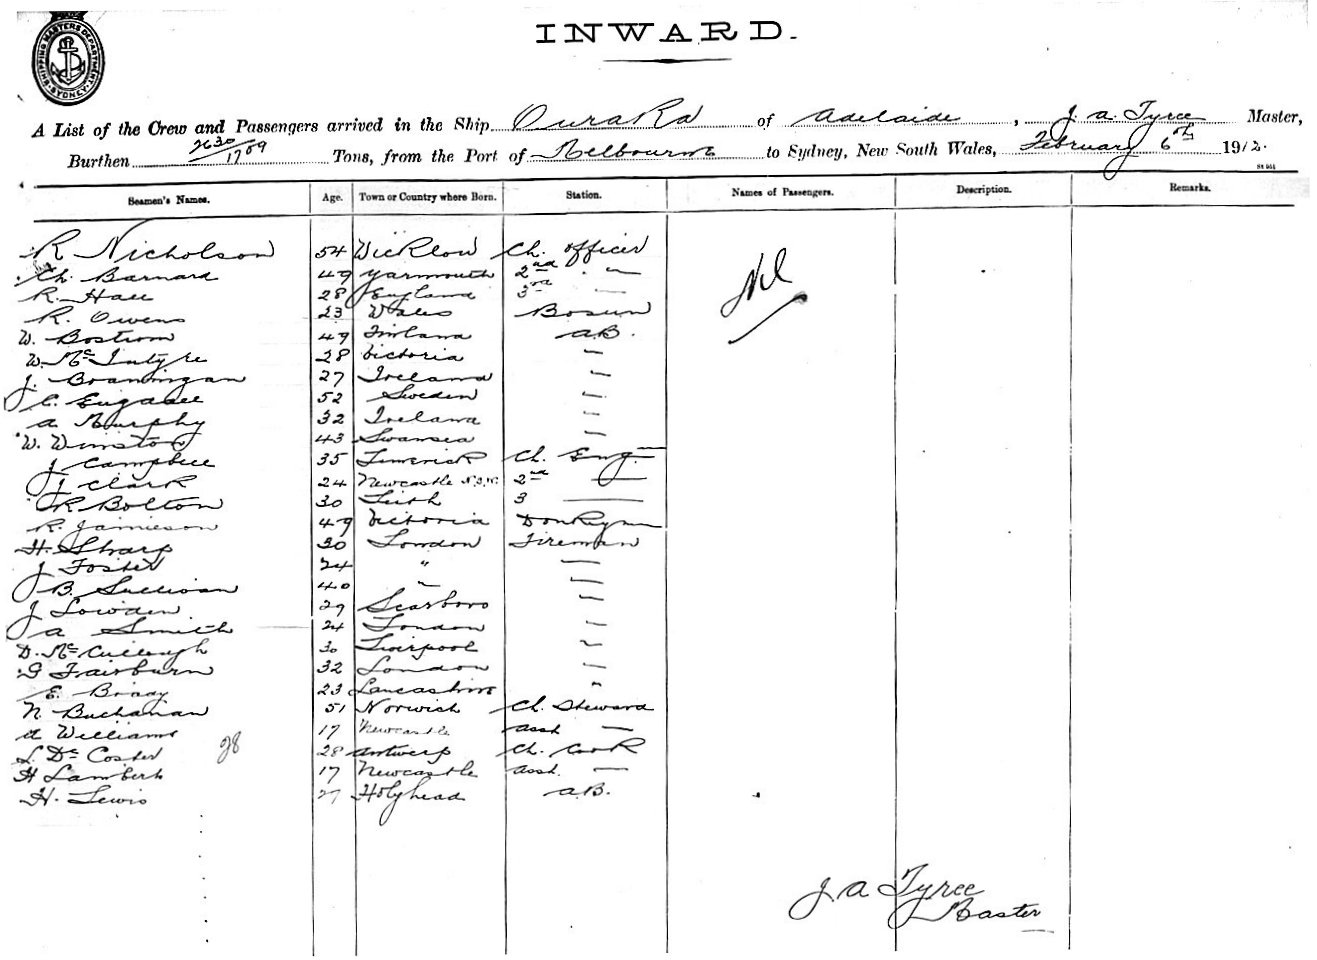 SHIPPING MASTERS DEPARTMENT SYDNEY
INWARD.
A List of the Crew and Passengers arrived in the Ship Ouraka of Adelaide, J. A. Tyree Master,
Burthen 2630/1709 Tons, from the Port of Melbourne to Sydney, New South Wales, February 6th 1912.
Seamen's Names. Age. Town or Country where Born. Station. Names of Passengers. Description. Remarks.
R Nicholson 54 Wicklow Ch. Officer
Ch. Barnard 49 Yarmouth 2nd " —
R. Hall 28 England 3rd —
R. Owens 23 Wales Bosun
Nil
W. Bostrom 49 Finland A.B.
W. McIntyre 28 Victoria —
J. Brannigan 27 Ireland —
C. 52 Sweden —
A Murphy 32 Ireland —
W. Winston 43 Swansea —
J Campbell 35 Limerick Ch. Eng.
J Clark 24 Newcastle N.S.W. 2nd —
R Bolton 30 Leith 3 —
R. Jamieson 49 Victoria Donkeyman
H. Sharp 30 London Fireman
J Foster 24 " —
B. Sullivan 40 " —
J Lowden 29 Scarboro —
A Smith 24 London —
D. McCullough 30 Liverpool "
G Fairburn 32 London —
E. Brady 23 Lancashire "
N. Buchanan 51 Norwich Ch. Steward
A Williams 17 Newcastle Asst —
L. De Coster 28 28 Antwerp Ch. Cook
H Lambert 17 Newcastle Asst. —
H. Lewis 27 Holyhead A.B.
J. A Tyree
Master